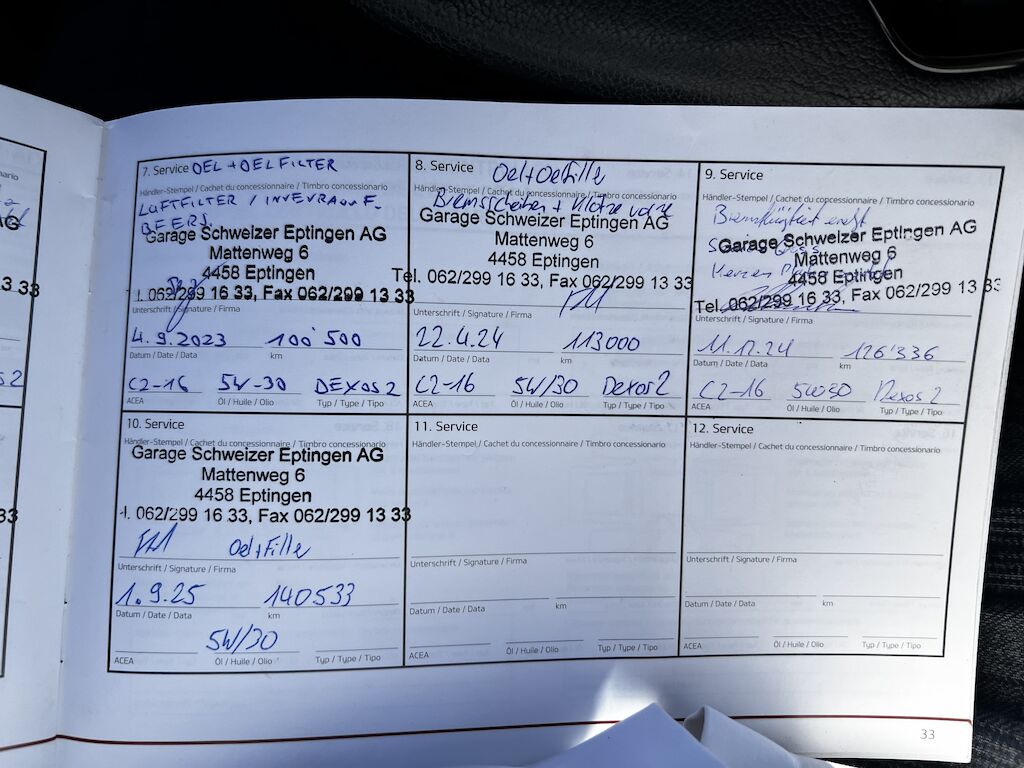 7. Service OEL + OELFILTER
Händler-Stempel / Cachet du concessionnaire / Timbro concessionario
LUFTFILTER / INNENRAUMF.
Garage Schweizer Eptingen AG
Mattenweg 6
4458 Eptingen
l. 062/299 16 33, Fax 062/299 13 33
Unterschrift / Signature / Firma
4.9.2023 100'500
Datum / Date / Data km
C2-16 5W-30 DEXOS 2
ACEA Öl / Huile / Olio Typ / Type / Tipo
8. Service Oel+Oelfilter
Händler-Stempel / Cachet du concessionnaire / Timbro concessionario
Bremsscheiben + Klötze vorne
Garage Schweizer Eptingen AG
Mattenweg 6
4458 Eptingen
Tel. 062/299 16 33, Fax 062/299 13 33
Unterschrift / Signature / Firma
22.4.24 113000
Datum / Date / Data km
C2-16 5W/30 Dexos 2
ACEA Öl / Huile / Olio Typ / Type / Tipo
9. Service
Händler-Stempel / Cachet du concessionnaire / Timbro concessionario
Bremsflüssigkeit
Garage Schweizer Eptingen AG
Mattenweg 6
Kerzen 4458 Eptingen
Tel. 062/299 16 33, Fax 062/299 13 3
Unterschrift / Signature / Firma
11.12.24 126'336
Datum / Date / Data km
C2-16 5W30 Dexos 2
ACEA Öl / Huile / Olio Typ / Type / Tipo
10. Service
Händler-Stempel / Cachet du concessionnaire / Timbro concessionario
Garage Schweizer Eptingen AG
Mattenweg 6
4458 Eptingen
l. 062/299 16 33, Fax 062/299 13 33
Oel+Filter
Unterschrift / Signature / Firma
1.9.25 140533
Datum / Date / Data km
5W/30
ACEA Öl / Huile / Olio Typ / Type / Tipo
11. Service
Händler-Stempel / Cachet du concessionnaire / Timbro concessionario
Unterschrift / Signature / Firma
Datum / Date / Data km
ACEA Öl / Huile / Olio Typ / Type / Tipo
12. Service
Händler-Stempel / Cachet du concessionnaire / Timbro concessionario
Unterschrift / Signature / Firma
Datum / Date / Data km
ACEA Öl / Huile / Olio Typ / Type / Tipo
33